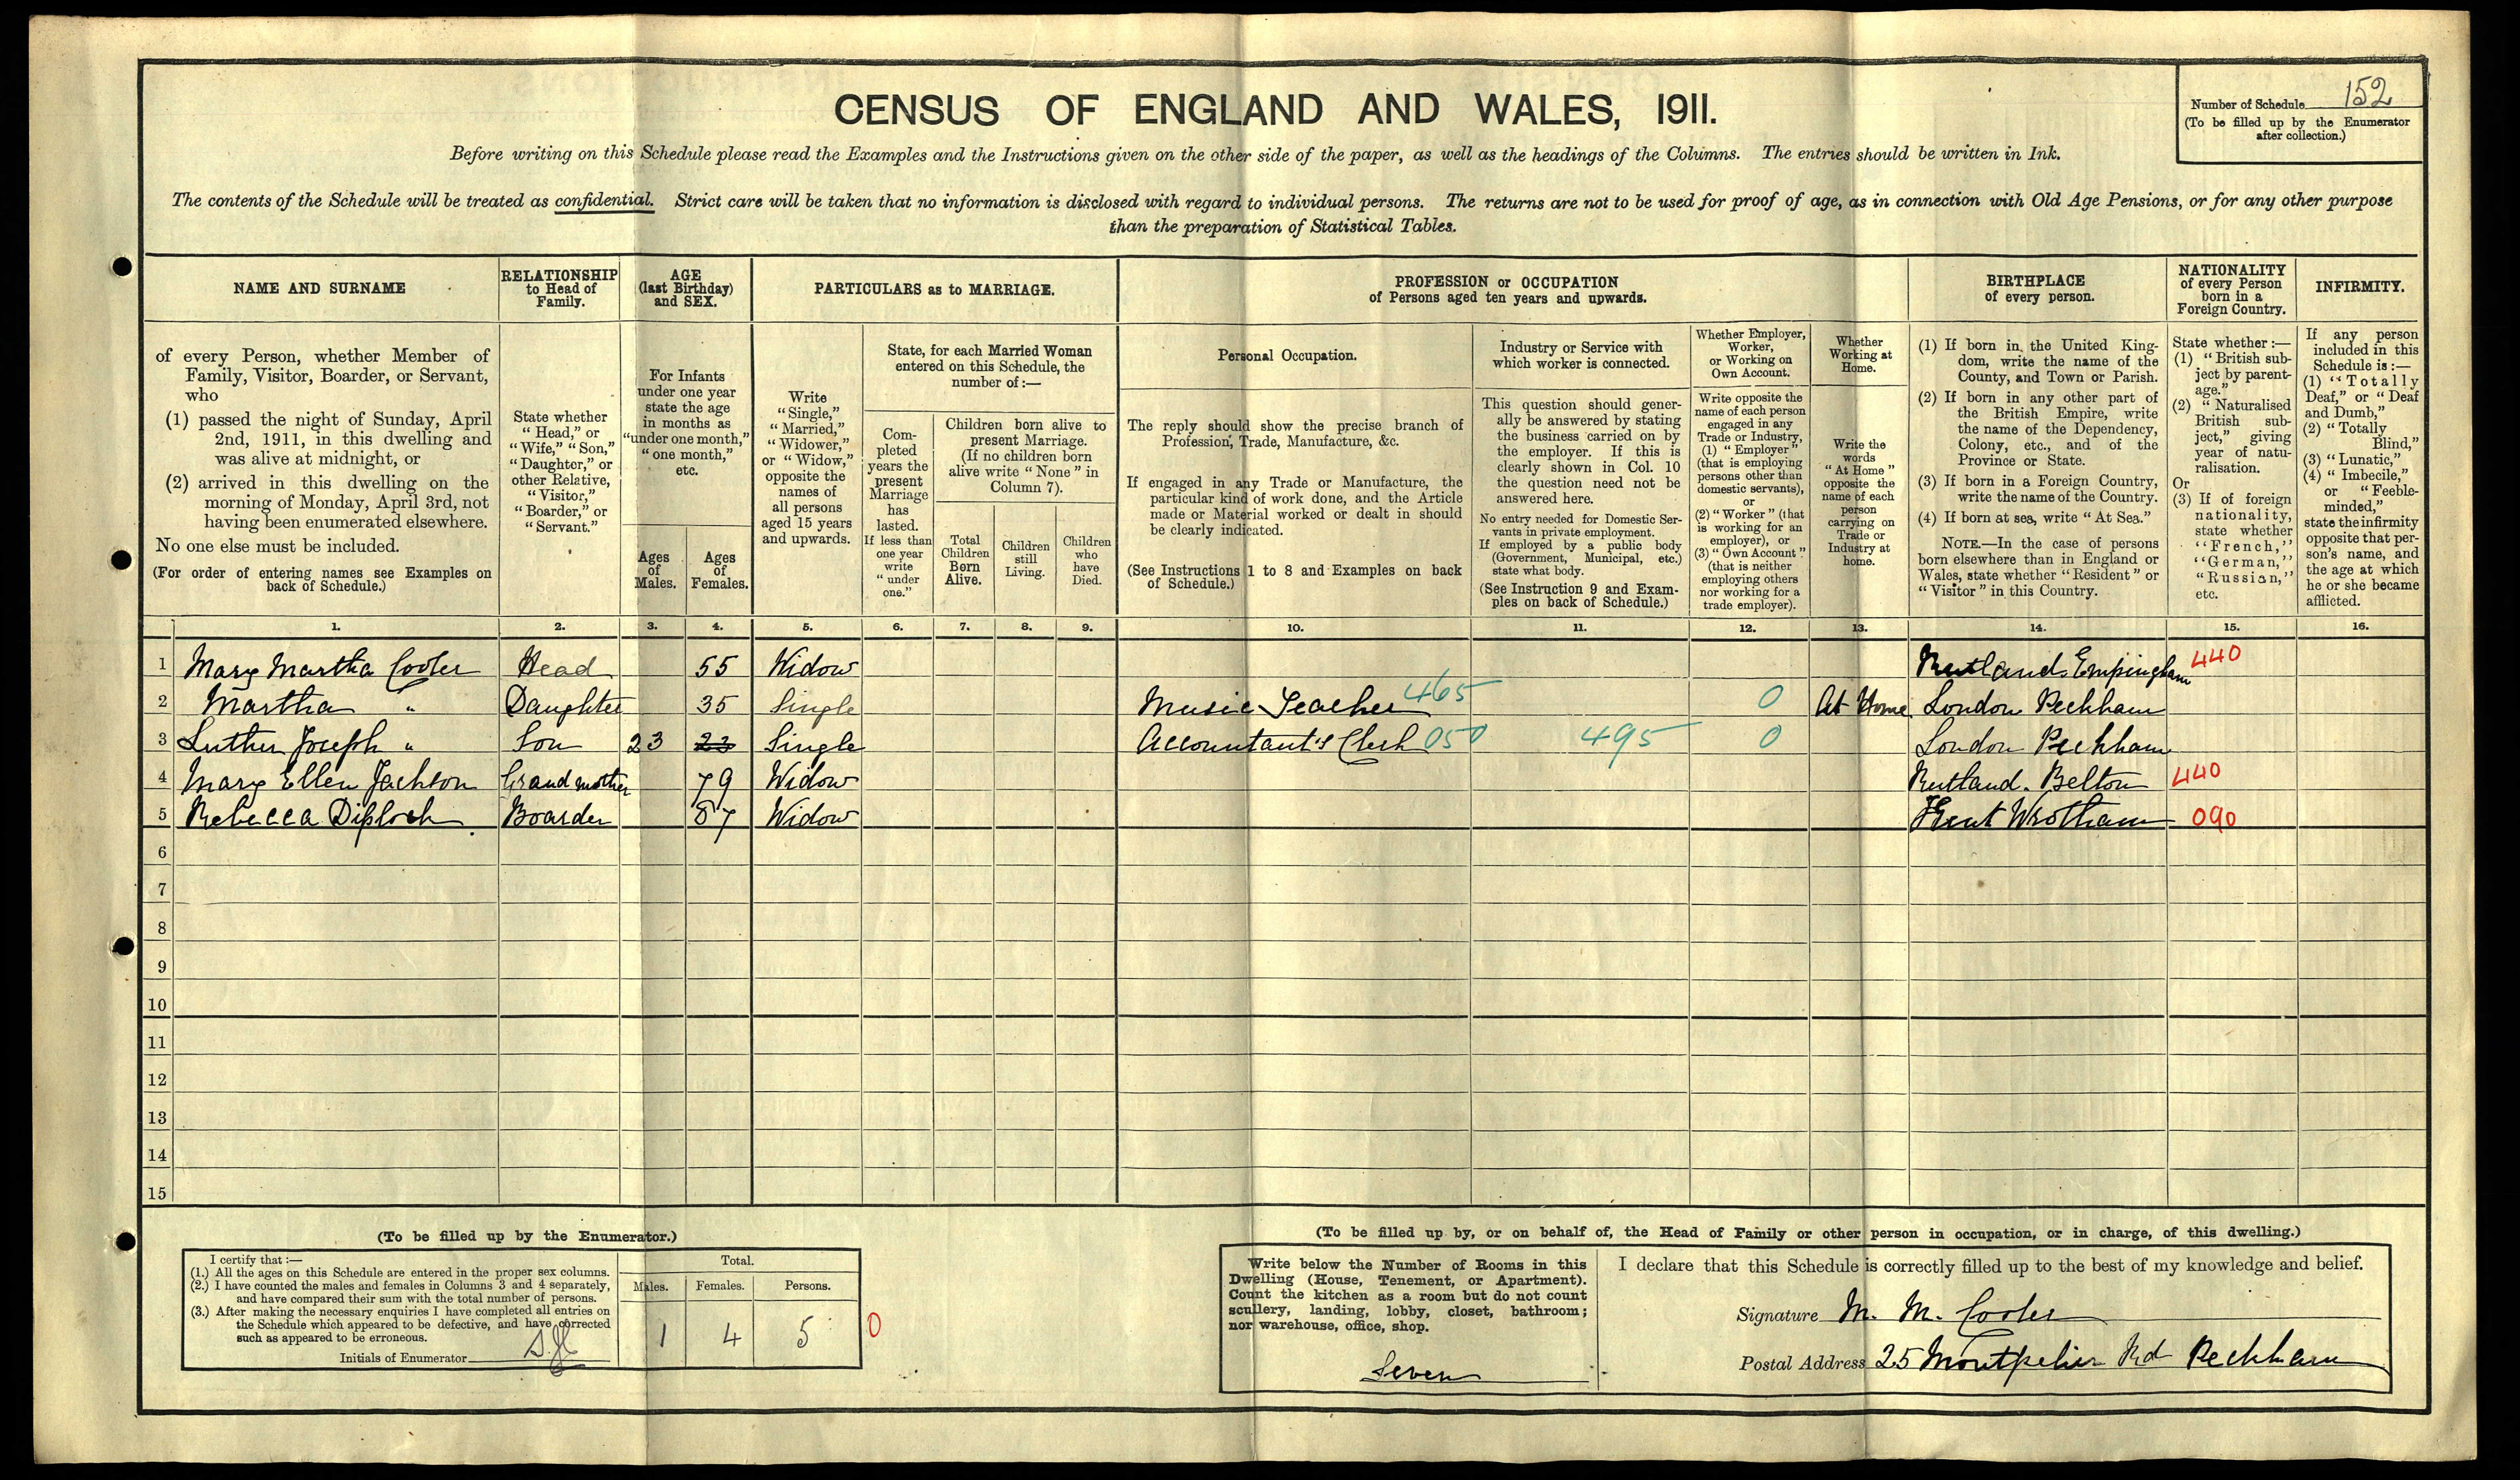 CENSUS OF ENGLAND AND WALES, 1911.
Number of Schedule 152
(To be filled up by the Enumerator
after collection.)
Before writing on this Schedule please read the Examples and the Instructions given on the other side of the paper, as well as the headings of the Columns. The entries should be written in Ink.
The contents of the Schedule will be treated as confidential. Strict care will be taken that no information is disclosed with regard to individual persons. The returns are not to be used for proof of age, as in connection with Old Age Pensions, or for any other purpose
than the preparation of Statistical Tables.
NAME AND SURNAME
of every Person, whether Member of
Family, Visitor, Boarder, or Servant,
who
(1) passed the night of Sunday, April
2nd, 1911, in this dwelling and
was alive at midnight, or
(2) arrived in this dwelling on the
morning of Monday, April 3rd, not
having been enumerated elsewhere.
No one else must be included.
(For order of entering names see Examples on
back of Schedule.)
RELATIONSHIP
to Head of
Family.
State whether
"Head," or
"Wife," "Son,"
"Daughter," or
other Relative,
"Visitor,"
"Boarder," or
"Servant."
AGE
(last Birthday)
and SEX.
For Infants
under one year
state the age
in months as
"under one month,"
"one month,"
etc.
Ages
of
Males.
Ages
of
Females.
PARTICULARS as to MARRIAGE.
Write
"Single,"
"Married,"
"Widower,"
or "Widow,"
opposite the
names of
all persons
aged 15 years
and upwards.
State, for each Married Woman
entered on this Schedule, the
number of:—
Com-
pleted
years the
present
Marriage
has
lasted.
If less than
one year
write
"under
one."
Children born alive to
present Marriage.
(If no children born
alive write "None" in
Column 7).
Total
Children
Born
Alive.
Children
still
Living.
Children
who
have
Died.
PROFESSION or OCCUPATION
of Persons aged ten years and upwards.
Personal Occupation.
The reply should show the precise branch of
Profession, Trade, Manufacture, &c.
If engaged in any Trade or Manufacture, the
particular kind of work done, and the Article
made or Material worked or dealt in should
be clearly indicated.
(See Instructions 1 to 8 and Examples on back
of Schedule.)
Industry or Service with
which worker is connected.
This question should gener-
ally be answered by stating
the business carried on by
the employer. If this is
clearly shown in Col. 10
the question need not be
answered here.
No entry needed for Domestic Ser-
vants in private employment.
If employed by a public body
(Government, Municipal, etc.)
state what body.
(See Instruction 9 and Exam-
ples on back of Schedule.)
Whether Employer,
Worker,
or Working on
Own Account.
Write opposite the
name of each person
engaged in any
Trade or Industry,
(1) "Employer"
(that is employing
persons other than
domestic servants),
or
(2) "Worker" (that
is working for an
employer), or
(3) "Own Account"
(that is neither
employing others
nor working for a
trade employer).
Whether
Working at
Home.
Write the
words
"At Home"
opposite the
name of each
person
carrying on
Trade or
Industry at
home.
BIRTHPLACE
of every person.
(1) If born in the United King-
dom, write the name of the
County, and Town or Parish.
(2) If born in any other part of
the British Empire, write
the name of the Dependency,
Colony, etc., and of the
Province or State.
(3) If born in a Foreign Country,
write the name of the Country.
(4) If born at sea, write "At Sea."
NOTE.—In the case of persons
born elsewhere than in England or
Wales, state whether "Resident" or
"Visitor" in this Country.
NATIONALITY
of every Person
born in a
Foreign Country.
State whether:—
(1) "British sub-
ject by parent-
age."
(2) "Naturalised
British sub-
ject," giving
year of natu-
ralisation.
Or
(3) If of foreign
nationality,
state whether
"French,"
"German,"
"Russian,"
etc.
INFIRMITY.
If any person
included in this
Schedule is:—
(1) "Totally
Deaf," or "Deaf
and Dumb,"
(2) "Totally
Blind,"
(3) "Lunatic,"
(4) "Imbecile,"
or "Feeble-
minded,"
state the infirmity
opposite that per-
son's name, and
the age at which
he or she became
afflicted.
1. 2. 3. 4. 5. 6. 7. 8. 9. 10. 11. 12. 13. 14. 15. 16.
1 Mary Martha Head 55 Widow Rutland Empingham 440
2 Martha " Daughter 35 Single Music Teacher 465 0 At Home London Peckham
3 Luther Joseph " Son 23 23 Single Accountant's Clerk 050 495 0 London Peckham
4 Mary Ellen Jackson Grandmother 79 Widow Rutland. Belton 440
5 Rebecca Diplock Boarder 87 Widow Kent Wrotham 090
6
7
8
9
10
11
12
13
14
15
(To be filled up by the Enumerator.)
I certify that:—
(1.) All the ages on this Schedule are entered in the proper sex columns.
(2.) I have counted the males and females in Columns 3 and 4 separately,
and have compared their sum with the total number of persons.
(3.) After making the necessary enquiries I have completed all entries on
the Schedule which appeared to be defective, and have corrected
such as appeared to be erroneous.
Initials of Enumerator
Total.
Males. Females. Persons.
1 4 5 0
(To be filled up by, or on behalf of, the Head of Family or other person in occupation, or in charge, of this dwelling.)
Write below the Number of Rooms in this
Dwelling (House, Tenement, or Apartment).
Count the kitchen as a room but do not count
scullery, landing, lobby, closet, bathroom;
nor warehouse, office, shop.
Seven
I declare that this Schedule is correctly filled up to the best of my knowledge and belief.
Signature M. M.
Postal Address 25 Montpelier Rd Peckham